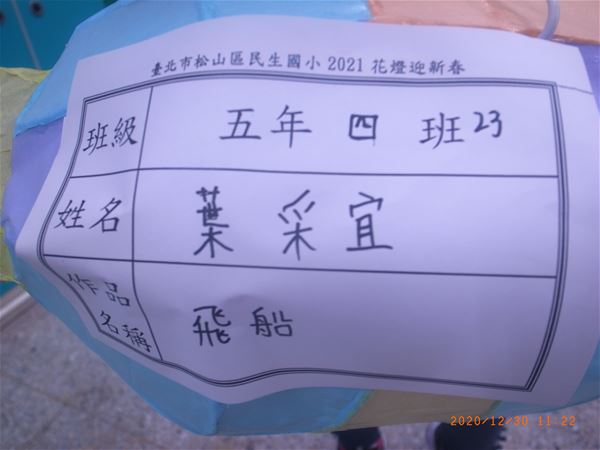 臺北市松山區民生國小2021花燈迎新春
班級 五年四班23
姓名 葉采宜
作品名稱 飛船
2020/12/30 11:22